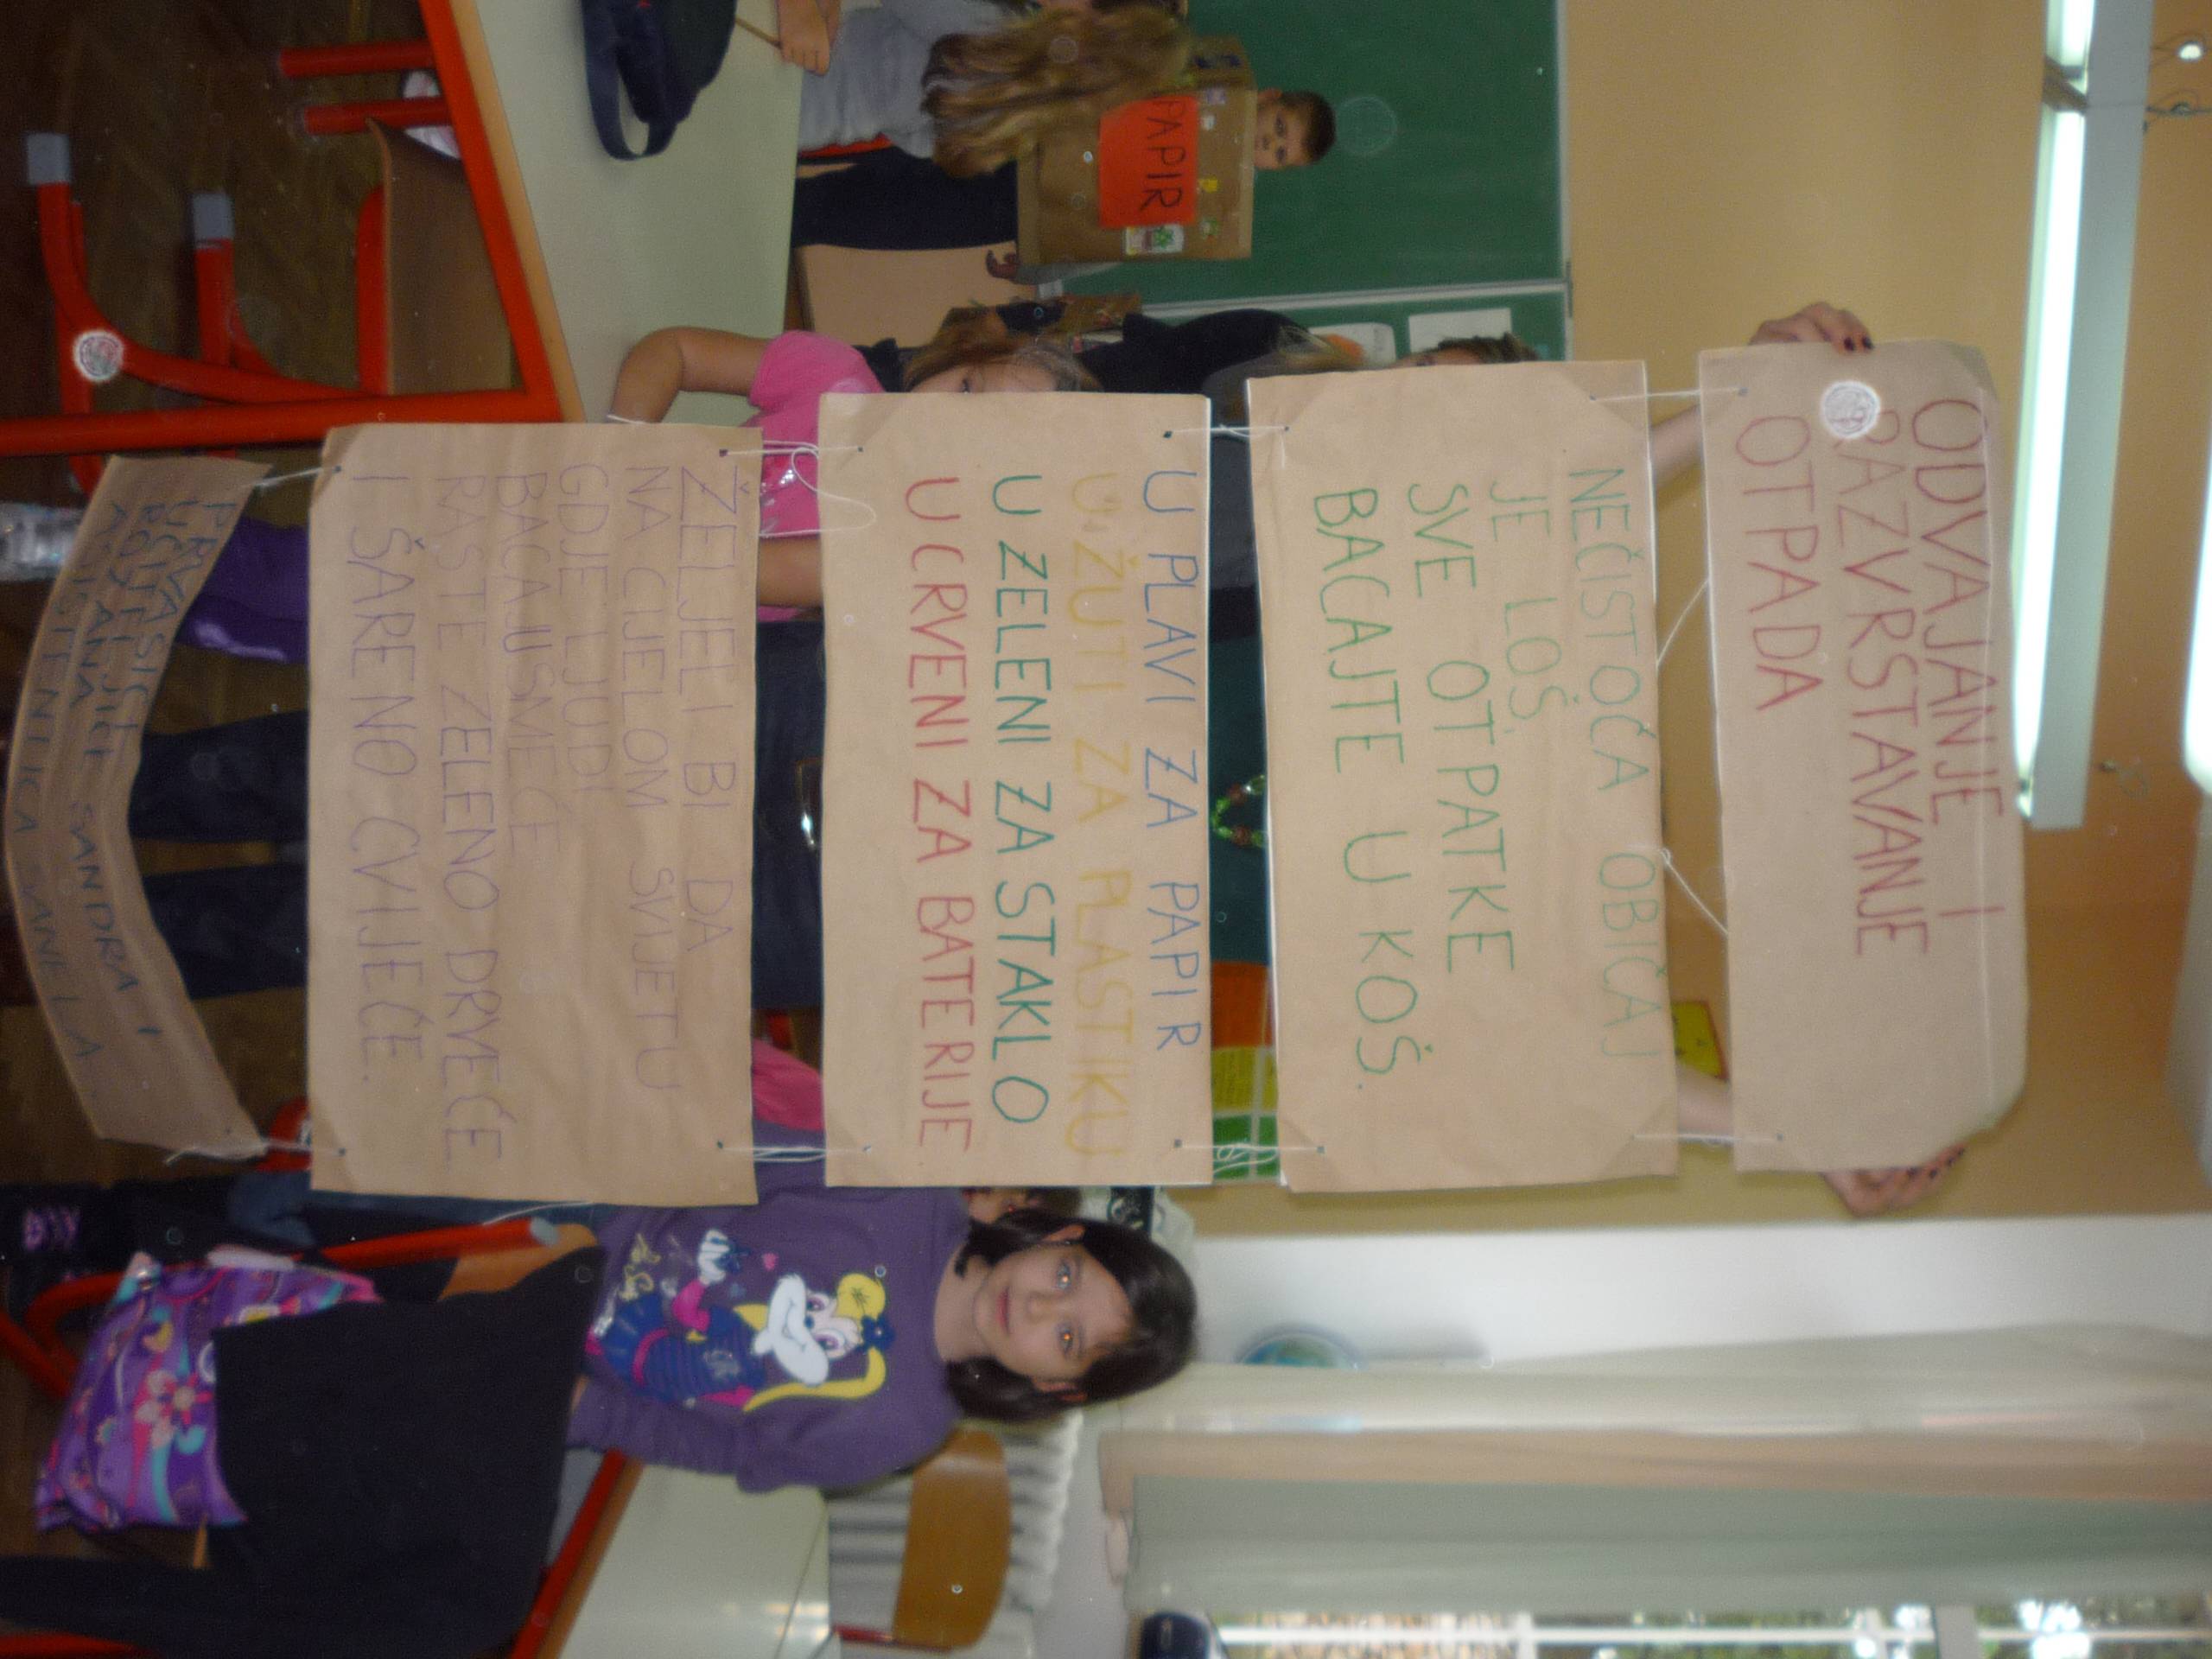 ODVAJANJE I
RAZVRSTAVANJE
OTPADA
NEČISTOČA OBIČAJ
JE LOŠ
SVE OTPATKE
BACAJTE U KOŠ.
U PLAVI ZA PAPIR
U ŽUTI ZA PLASTIKU
U ZELENI ZA STAKLO
U CRVENI ZA BATERIJE
ŽELJELI BI DA
NA CIJELOM SVIJETU
GDJE LJUDI
BACAJU SMEĆE
RASTE ZELENO DRVEĆE
I ŠARENO CVIJEĆE.
PRVAŠIĆI
UČITELJICE SANDRA I
ANA
ASISTENTICA DANIELA
PAPIR